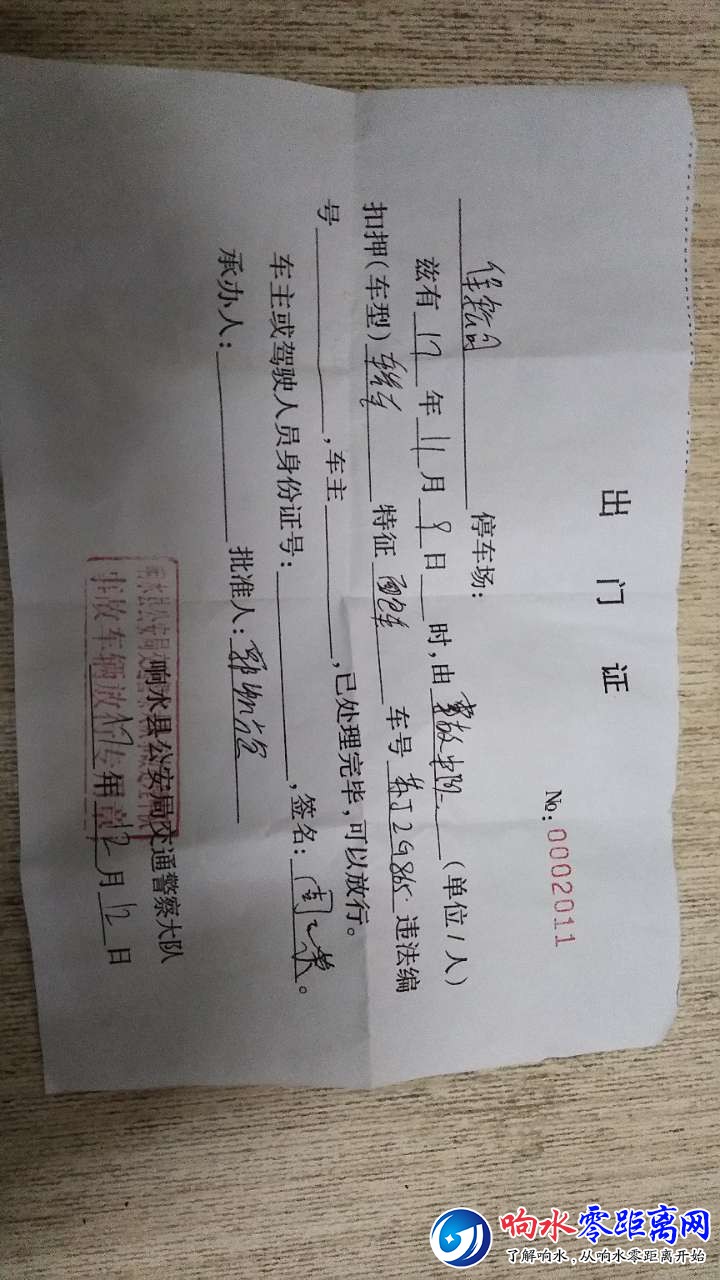 出门证
No:0002011
停车场:
兹有17年11月9日___时,由事故中队(单位/人)
扣押(车型)___特征___车号苏J29865违法编
号___,车主___,已处理完毕,可以放行。
车主或驾驶人员身份证号:___,签名:___。
承办人:___批准人:___
响水县公安局交通警察大队
事故车辆放行专用章
17年12月12日
响水零距离网
了解响水,从响水零距离开始